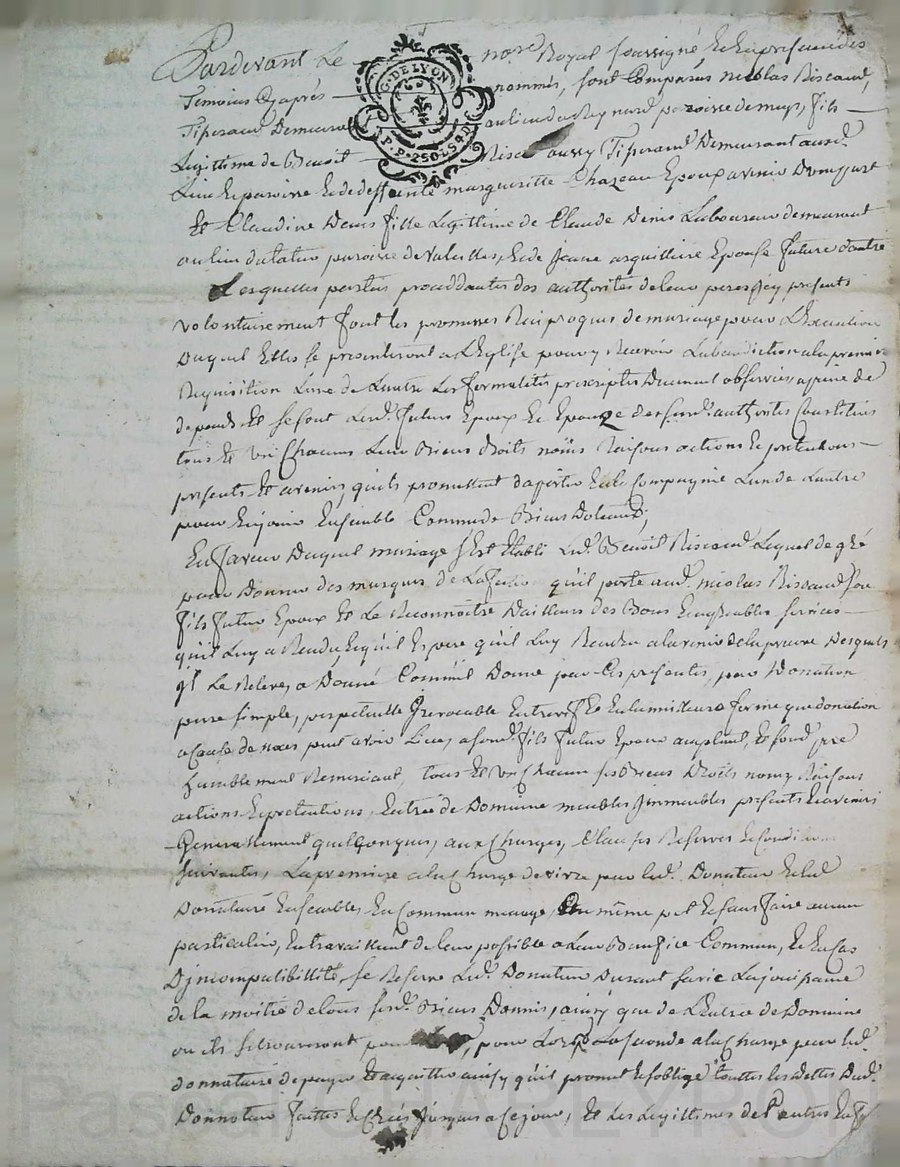 Pardevant Le no.re Royal soussigné Et En presence des
Temoins Cyaprés nommés, sont Comparus nicolas Riscaud,
G. DE LYON
P. P. 2 SOLS 4 D
Tisserand Demeurant au lieu de Reynard paroisse de , fils
Legittime de Benoit aussy Tisserand Demeurant aud.
Lieu Et paroisse Et de deffunte margueritte Chazeau Epoux avenir D'une part
Et Claudine Denis fille Legittime de Claude Denis Laboureur demeurant
au lieu du paroisse de , Et de Jeane Epouse future d'autre
Lesquelles parties proceddantes des authorités de leur peres icy presents
volontairement font les promesses Reciproques de mariage pour L'Execution
Duquel Elles se presenteront a L'Eglise pour y Recevoir La benediction a la premiere
Requisition L'une de L'autre Les formalités prescriptes Duement observées, a peine de
depends Et se sont Lesd. futurs Epoux Et Epouze de sesd. authorités Constitués
tous Et Un Chacuns Leurs Biens droits noms Raisons actions Et pretentions
presents Et avenirs, qu'ils promettent d'aporter En la Compagnie L'un de L'autre
pour En jouir Ensemble Comme de Biens Dotaux;
En faveur Duquel mariage s'Est Etabli Led. Benoit Riscaud Lequel de gré
pour Donner des marques de La qu'il porte aud. nicolas Riscaud son
fils futur Epoux Et Le Reconnoitre D'ailleurs des Bons Et agreables services
qu'il Luy a Rendu, Et qu'il Espere qu'il Luy Rendra a l'avenir de la preuve Desquels
il Le Releve, a Donné Comme il Donne par Ces presentes, par Donation
pure simple, perpetuelle Irrevocable Entre vifs Et En la meilleure forme que donation
a Cause de noces peut avoir Lieu, a sond. fils futur Epoux acceptant, Et sond. pere
humblement Remerciant, tous Et Un Chacun ses Biens Droits noms Raisons
actions Et pretentions, Entrée de Domaine meubles Immeubles presents Et avenirs
Generallement quelConques, aux Charges, Clauses Reserves Et Conditions
suivantes, La premiere a la Charge de vivre pour Led. Donateur Et Led.
Donnataire Ensembles, En Commun menage, même pot Et sans faire aucun
particulier, En travaillant de leur possible a Leur Benefice Commun, Et En Cas
D'incompatibillité, se Reserve Led. Donateur Durant sa vie La jouissance
de la moitié de tous sesd. Biens Donnés, ainsy que de L'Entrée de Domaine
ou ils se trouveront pour Lors, La seconde a la Charge pour led.
donnataire de payer Et acquitter ainsy qu'il promet Et s'oblige touttes les Dettes Dud.
Donnateur faittes Et Créés jusques a Ce jour, Et Les Legittimes de